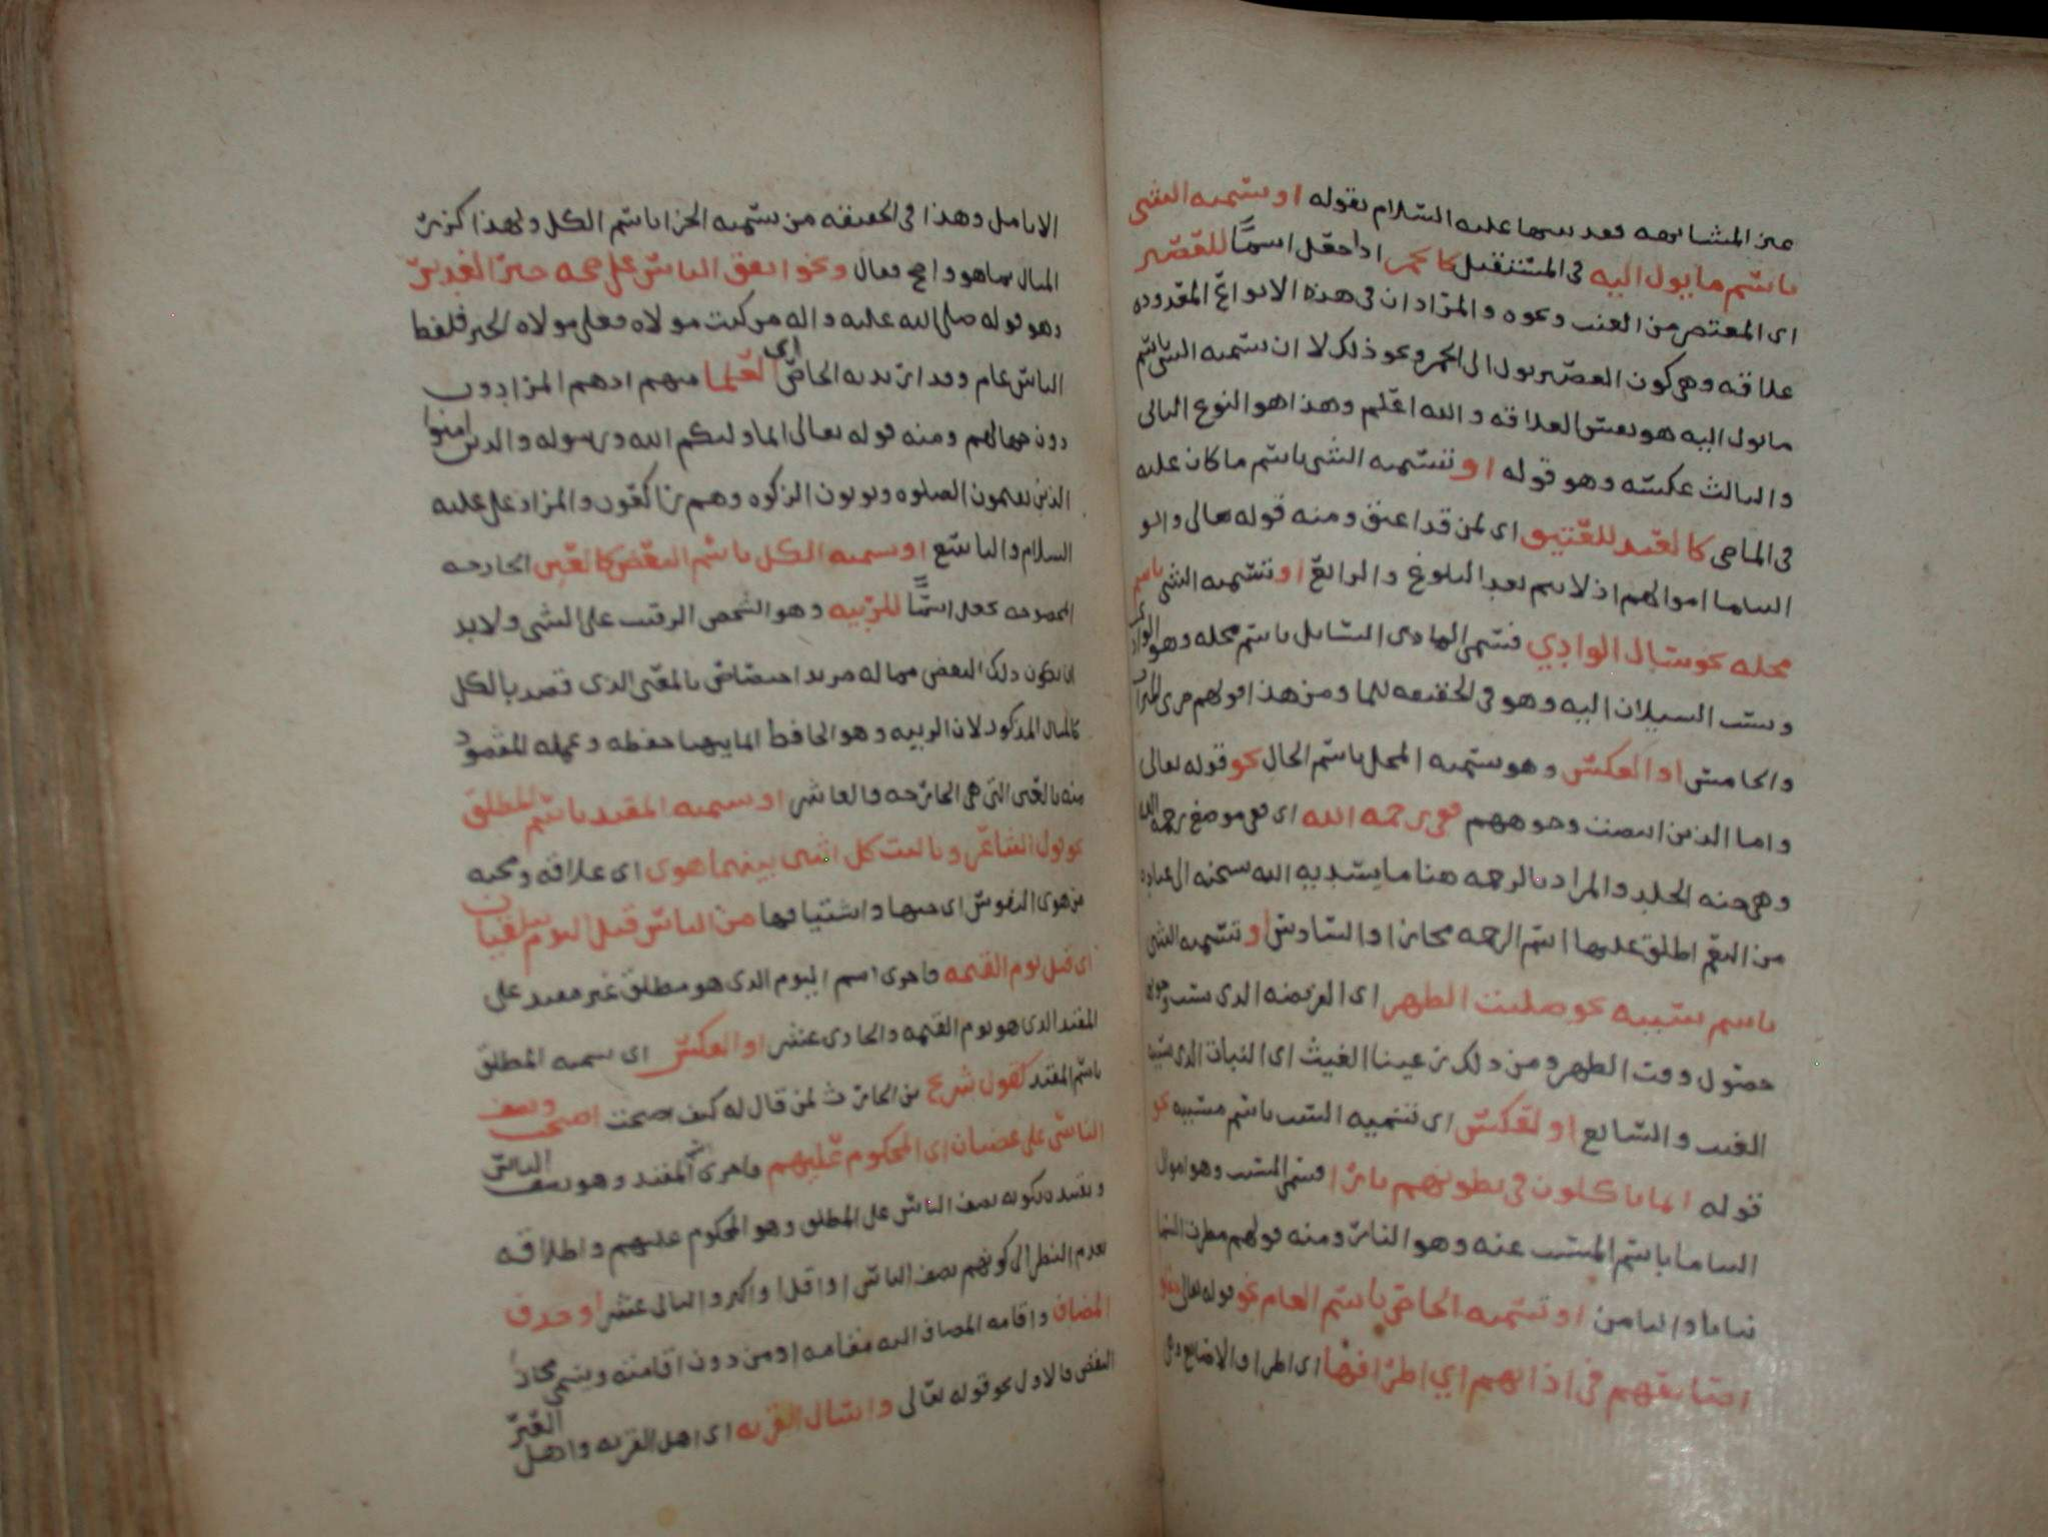 عن المشابهه فقد سها عليه السلام بقوله او تسميه الشي
باسم ما يول اليه في المستقبل كالخمر اذا جعل اسمًا للعصير
اى المعتصر من العنب ونحوه والمراد ان في هذه الانواع المعدوده
علاقه وهي كون العصير يول الى الخمر ونحو ذلك لا ان تسميه الشي باسم
ما يول اليه هو نفس العلاقه والله اعلم وهذا هو النوع الثاني
والثالث عكسه وهو قوله او تسميه الشي باسم ما كان عليه
في الماضي كالعبد للعتيق اى لمن قد اعتق ومنه قوله تعالى واتوا
اليتاما اموالهم اذ لا يتم بعد البلوغ والرابع او تسميه الشي باسم
محله نحو سال الوادي فسمى الما الذى السايل باسم محله وهو الوادى
ونسب السيلان اليه وهو في الحقيقه للما ومن هذا قولهم جرى الميزاب
والخامس او العكس وهو تسميه المحل باسم الحال نحو قوله تعالى
واما الذين ابيضت وجوههم ففي رحمه الله اى في موضع رحمه الله
وهي جنه الخلد والمراد بالرحمه هنا ما يسديه الله سبحنه الى عباده
من النعم اطلق عليها اسم الرحمه مجازا والسادس او تسميه الشي
باسم سببه نحو صليت الظهر اى الفريضه الذى سبب وجوبها
حصول وقت الظهر ومن ذلك رعينا الغيث اى النبات الذى سببه
الغيث والسابع او لعكس اى تسميه السبب باسم مسببه نحو
قوله انما ياكلون في بطونهم نارا فسمى السبب وهو اموال
اليتاما باسم المسبب عنه وهو النار ومنه قولهم مطرت السما
نباتا والثامن او تسميه الخاص باسم العام نحو قوله تعالى
اصابعهم في اذانهم اي اطرافها اى اطراف الاصابع وهي
الانامل وهذا في الحقيقه من تسميه الجزا باسم الكل ولهذا كرر
المثال بما هو واضح فقال ونحو اتفق الناس على صحه خبر الغدير
وهو قوله صلى الله عليه واله من كنت مولاه فعلي مولاه الخبر فلفظ
الناس عام وقد اريد به الخاص اى العلما منهم اذ هم المرادون
دون جهالهم ومنه قوله تعالى انما وليكم الله ورسوله والذين امنوا
الذين يقيمون الصلوه ويوتون الزكوه وهم راكعون والمراد علي عليه
السلام والتاسع او تسميه الكل باسم البعض كالعين الجارحه
المخصوصه تجعل اسمًا للربيه وهو الشخص الرقيب على الشي ولابد
ان يكون ذلك البعض مما له مزيد اختصاص بالمعنى الذى قصد بالكل
كالمثال المذكور لان الربيه وهو الحافظ انما يتهيا حفظه وعمله المقصود
منه بالعين التي هي الجارحه والعاشر او تسميه المقيد باسم المطلق
نحو قول الشاعر ويا ليت كل اثنين بينهما هوى اى علاقه ومحبه
من هوى النفوس اى حبها واشتياقها من الناس قبل اليوم يلتقيان
اى قبل يوم القيمه فاجرى اسم اليوم الذى هو مطلق غير مقيد على
المقيد الذى هو يوم القيمه والحادى عشر او العكس اى تسميه المطلق
باسم المقيد كقول شريح بن الحارث لمن قال له كيف اصبحت اصبحت ونصف
الناس علي غضبان اى المحكوم عليهم فاجرى اسم المقيد وهو نصف الناس
وتقييده بكونه نصف الناس على المطلق وهو المحكوم عليهم واطلاقه
بعدم النظر الى كونهم نصف الناس او اقل او اكثر والثانى عشر او حذف
المضاف واقامه المضاف اليه مقامه او من دون اقامته ويسمى مجاز
النقص فالاول نحو قوله تعالى واسال القريه اى اهل القريه واهل العير